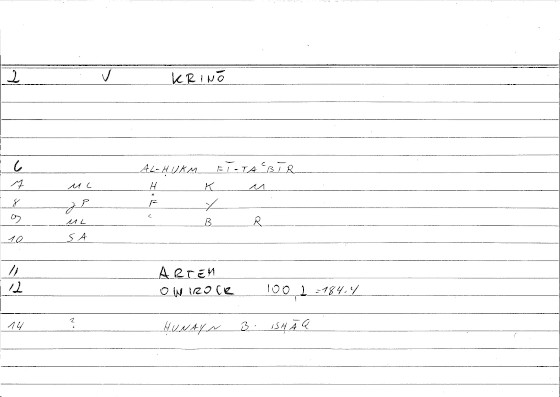 2 V KRINŌ
6 AL-ḤUKM FĪ-TAʿBĪR
7 ML Ḥ K M
8 JP F Y
9 ML ʿ B R
10 SA
11 ARTEM
12 ONIROCR 100,2 = 184.4
14 ? ḤUNAYN B. ISḤĀQ